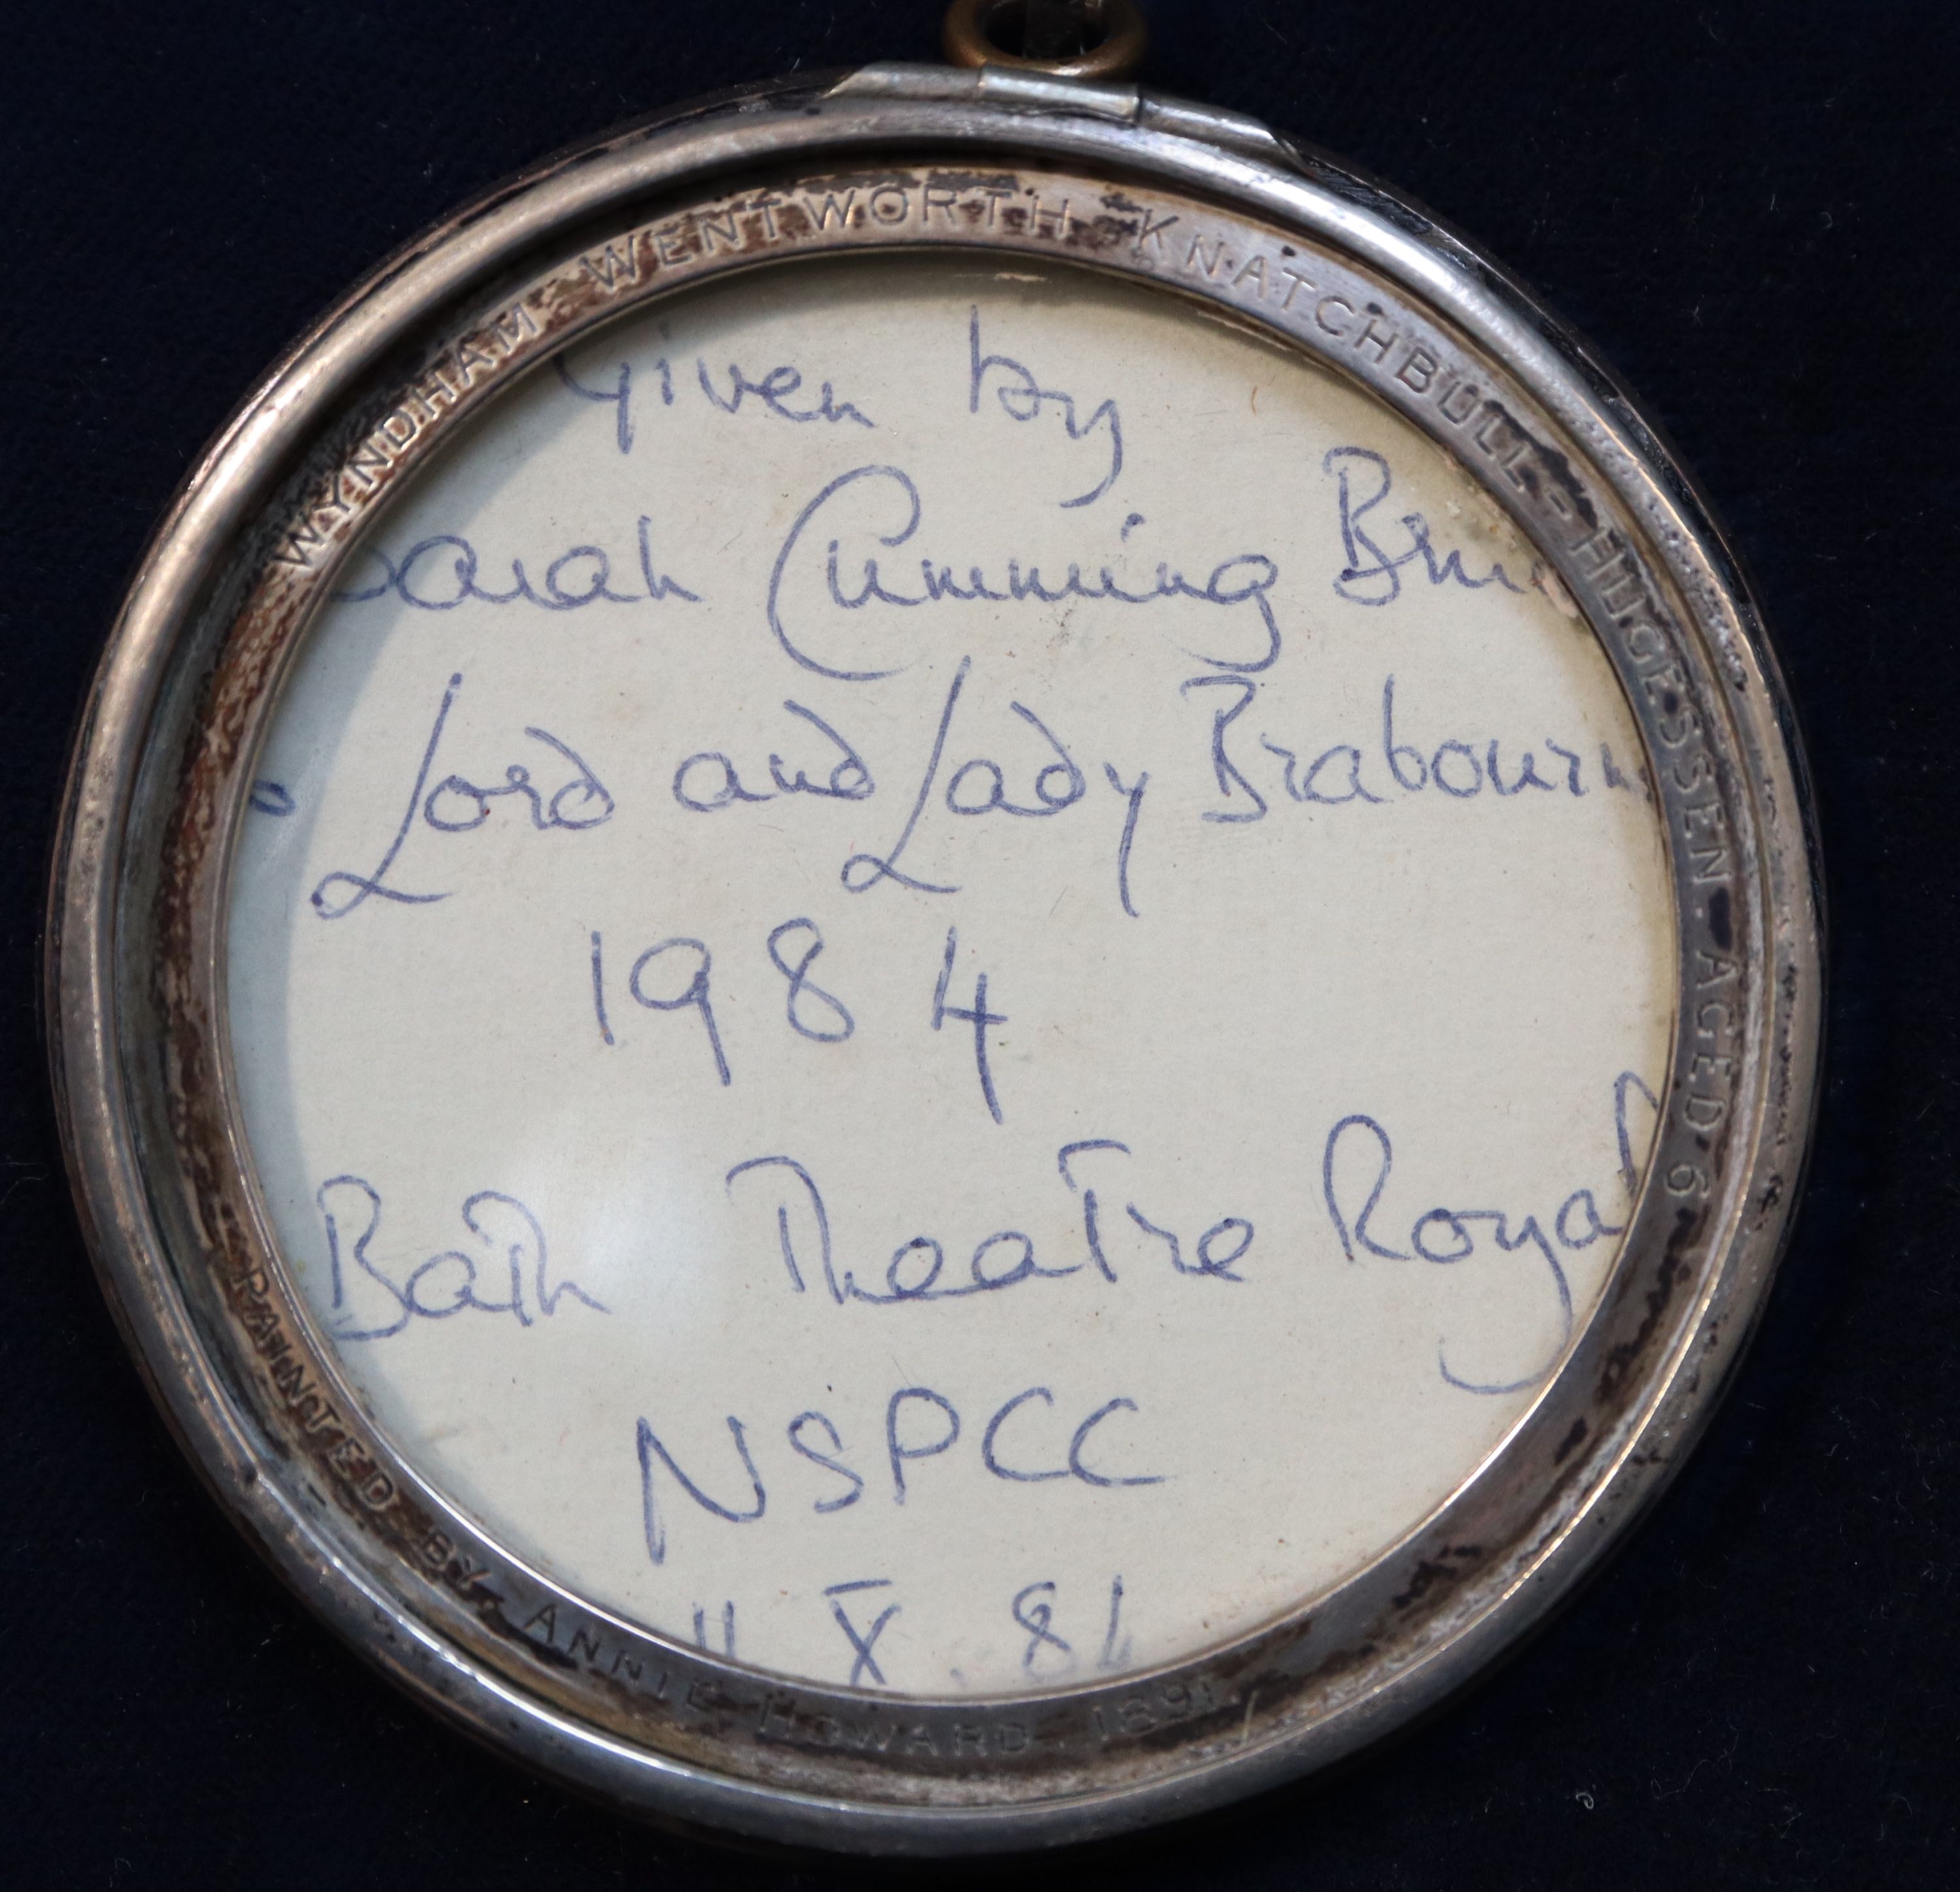 WYNDHAM - WENTWORTH - KNATCHBULL - HUGESSEN. AGED 6
Given by
Sarah Cumming
Lord and Lady Brabourne
1984
Bath Theatre Royal
NSPCC
11 X . 84
PAINTED BY ANNIE HOWARD 1891